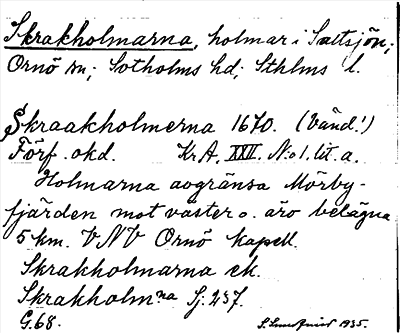 Skrakholmarna, holmar i Saltsjön;
Ornö sn; Sotholms hd; Sthlms l.
Skraakholmerna 1670. (Vänd!)
Förf. okd. Kr. A. XXII. N:o 1. lit. a.
Holmarna avgränsa Mörby-
fjärden mot väster o. äro belägna
5 km. VNV Ornö kapell.
Skrakholmarna ek.
Skrakholmna Sj: 237.
G. 68. 1935.